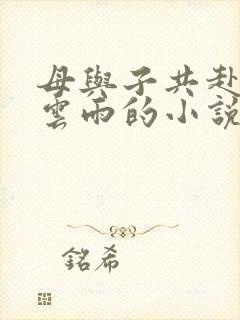 母與子共赴
雲雨的小說
銘希